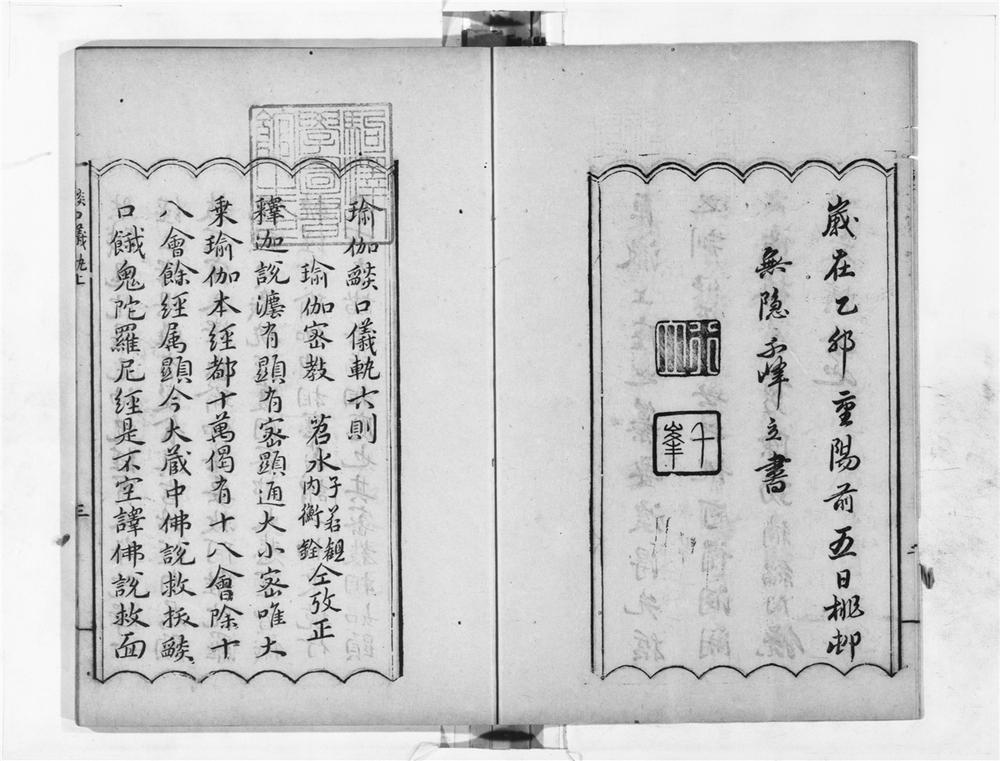 歲在乙卯重陽前五日桃邨
無隱千峰立書
千峯
瑜伽燄口儀軌六則
瑜伽密教 苕水子若觀內衡銓仝攷正
釋迦說灋有顯有密顯通大小密唯大
乗瑜伽本經都十萬偈有十八會除十
八會餘經属顯今大藏中佛說救拔燄
口餓鬼陀羅尼經是不空譯佛說救面
燄口儀軌上
三